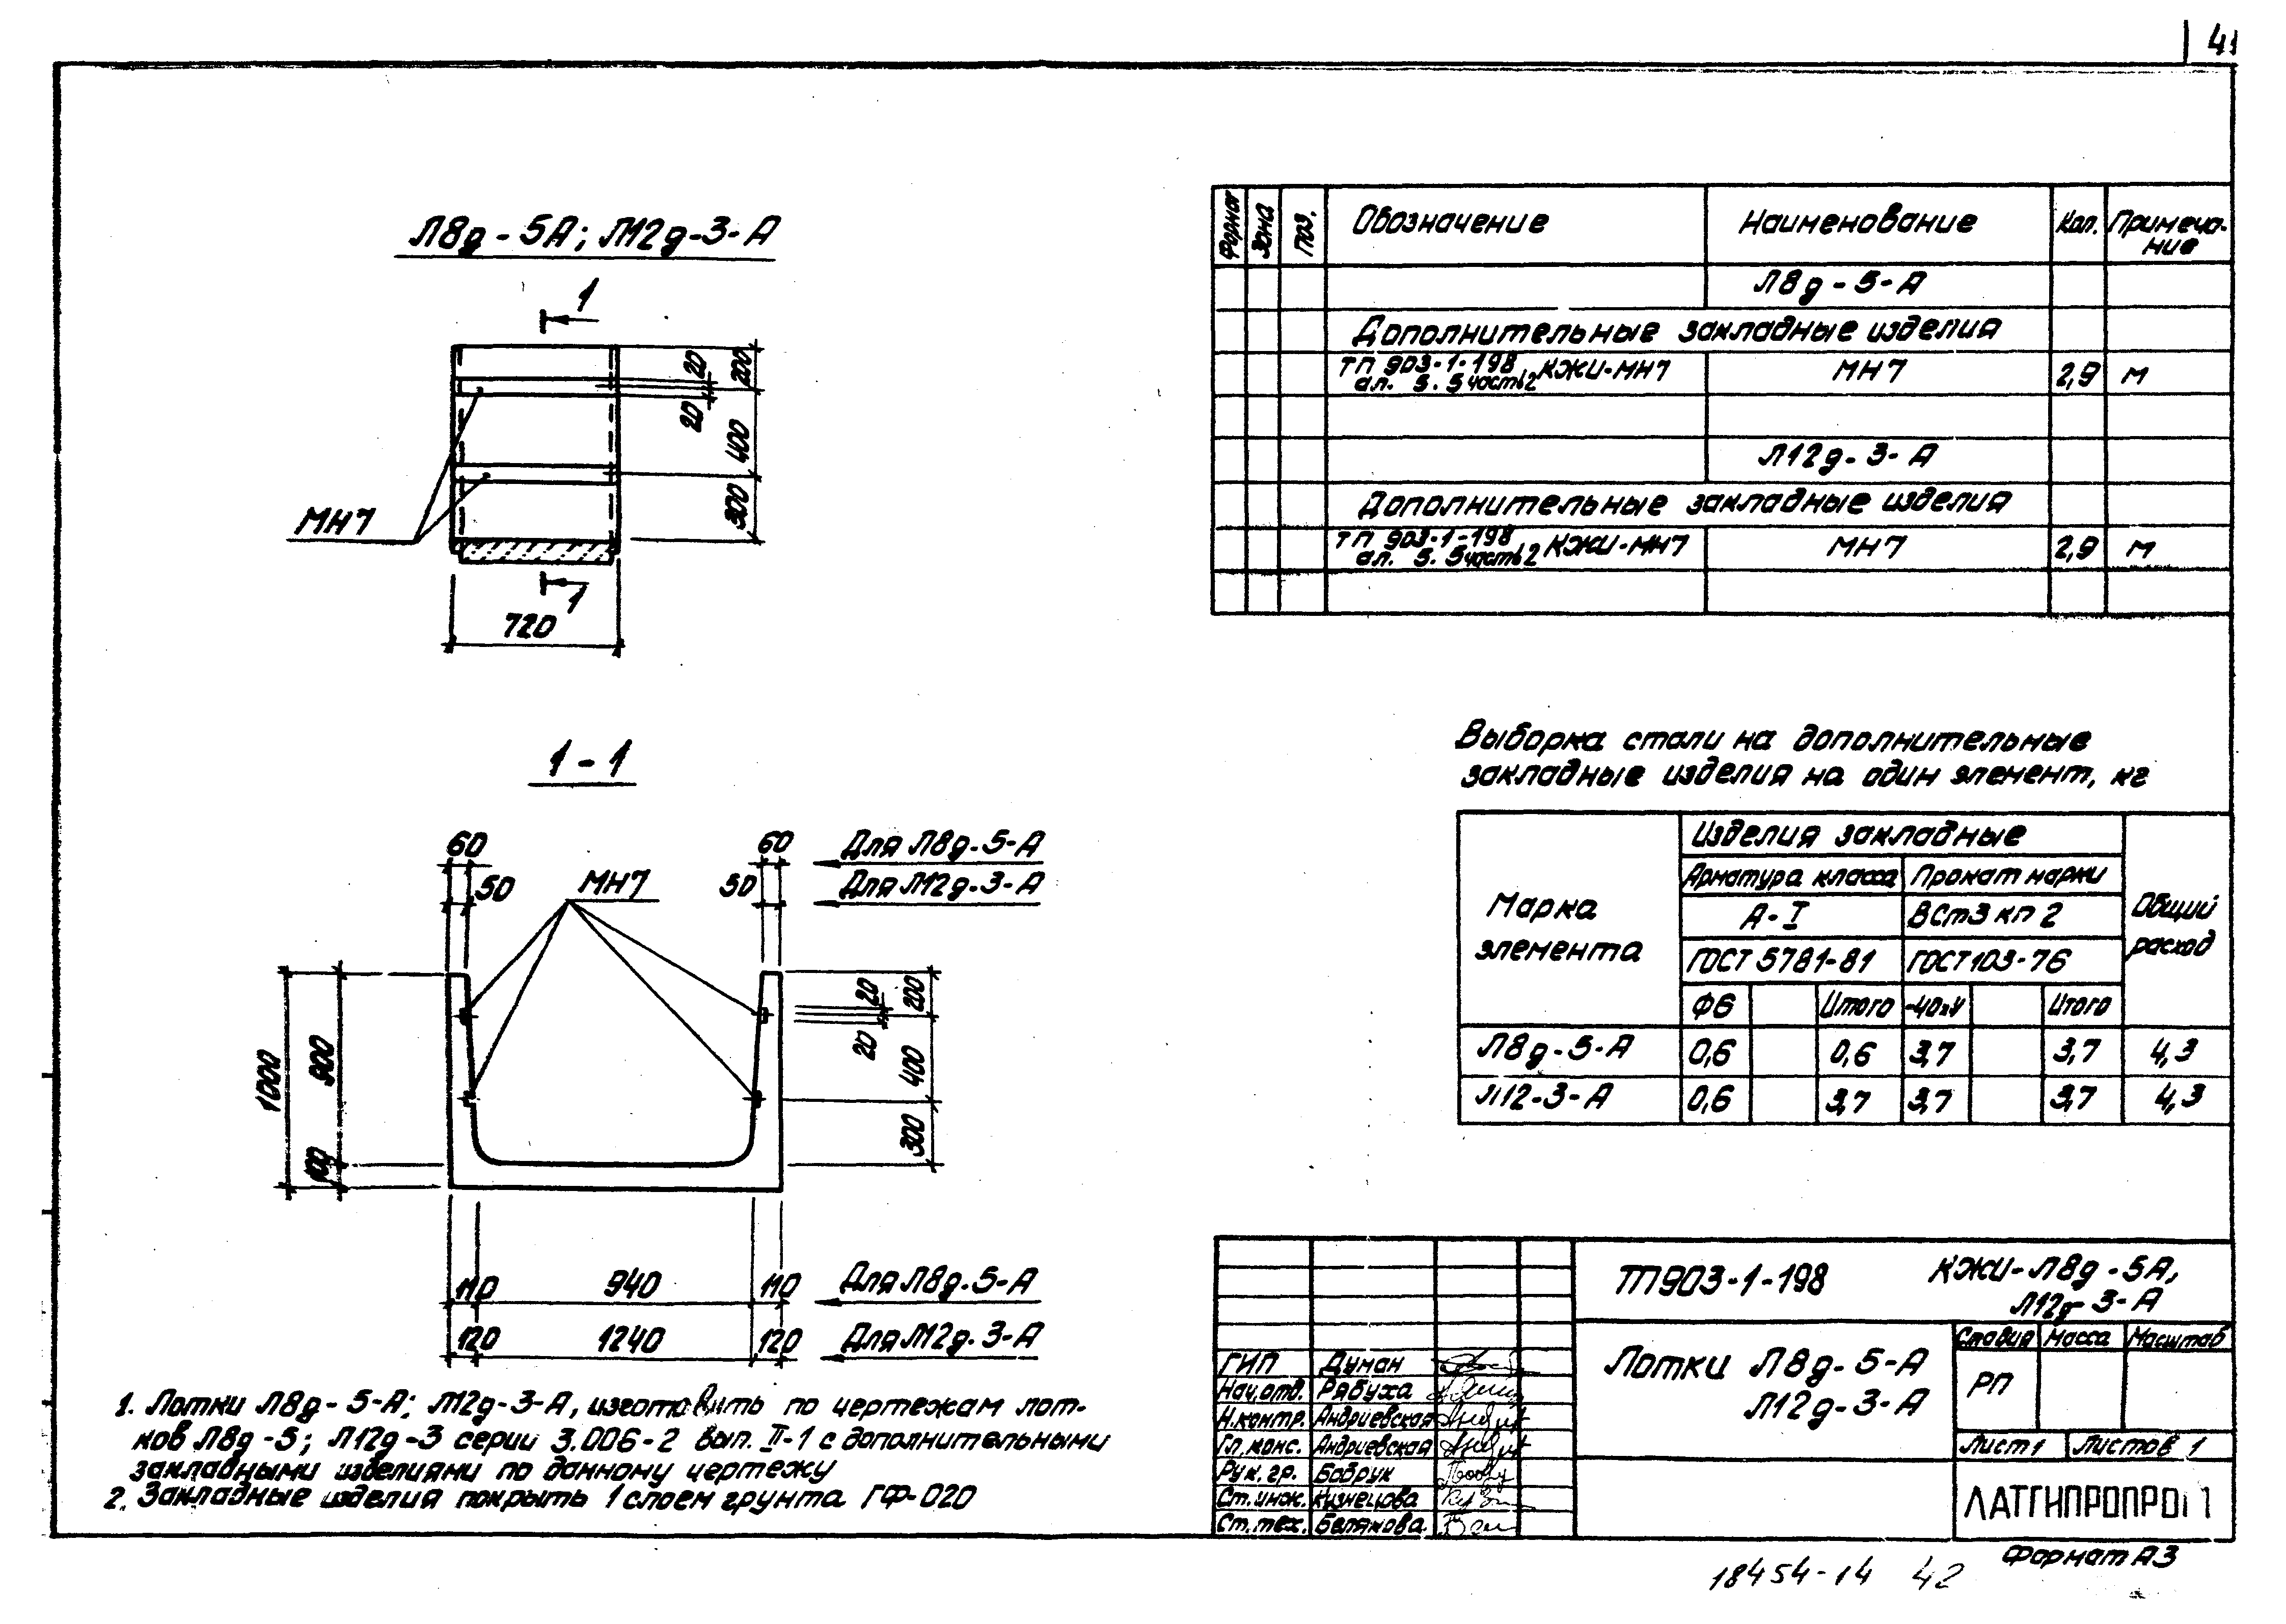 41
Л8д-5А; Л12д-3-А
1
20
200
20
400
300
МН7
1
720
1-1
60
60
Для Л8д-5-А
50
МН7
50
Для Л12д-3-А
1000
900
100
20
200
20
400
300
110
940
110
Для Л8д-5-А
120
1240
120
Для Л12д-3-А
1. Лотки Л8д-5-А; Л12д-3-А, изготовить по чертежам лот-
ков Л8д-5; Л12д-3 серии 3.006-2 вып. II-1 с дополнительными
закладными изделиями по данному чертежу
2. Закладные изделия покрыть 1 слоем грунта ГФ-020
Формат Зона Поз. Обозначение Наименование Кол. Примеча-
ние
Л8д-5-А
Дополнительные закладные изделия
ТП 903-1-198 КЖИ-МН7 МН7 2,9 м
ал. 5. 5 часть 2
Л12д-3-А
Дополнительные закладные изделия
ТП 903-1-198 КЖИ-МН7 МН7 2,9 м
ал. 5. 5 часть 2
Выборка стали на дополнительные
закладные изделия на один элемент, кг
Марка
элемента
Изделия закладные
Общий
расход
Арматура класса Прокат марки
А-I ВСт3кп2
ГОСТ 5781-81 ГОСТ 103-76
Ф6 Итого -40х4 Итого
Л8д-5-А 0,6 0,6 3,7 3,7 4,3
Л12-3-А 0,6 3,7 3,7 3,7 4,3
ТП903-1-198 КЖИ-Л8д-5А,
Л12д-3-А
Лотки Л8д-5-А
Л12д-3-А
Стадия Масса Масштаб
РП
Лист 1 Листов 1
ЛАТГИПРОПРОМ
ГИП Думан
Нач.отд. Рябуха
Н.контр. Андриевская
Гл.конс. Андриевская
Рук.гр. Бобрук
Ст.инж. Кузнецова
Ст.тех. Белякова
Формат А3
18454-14 42